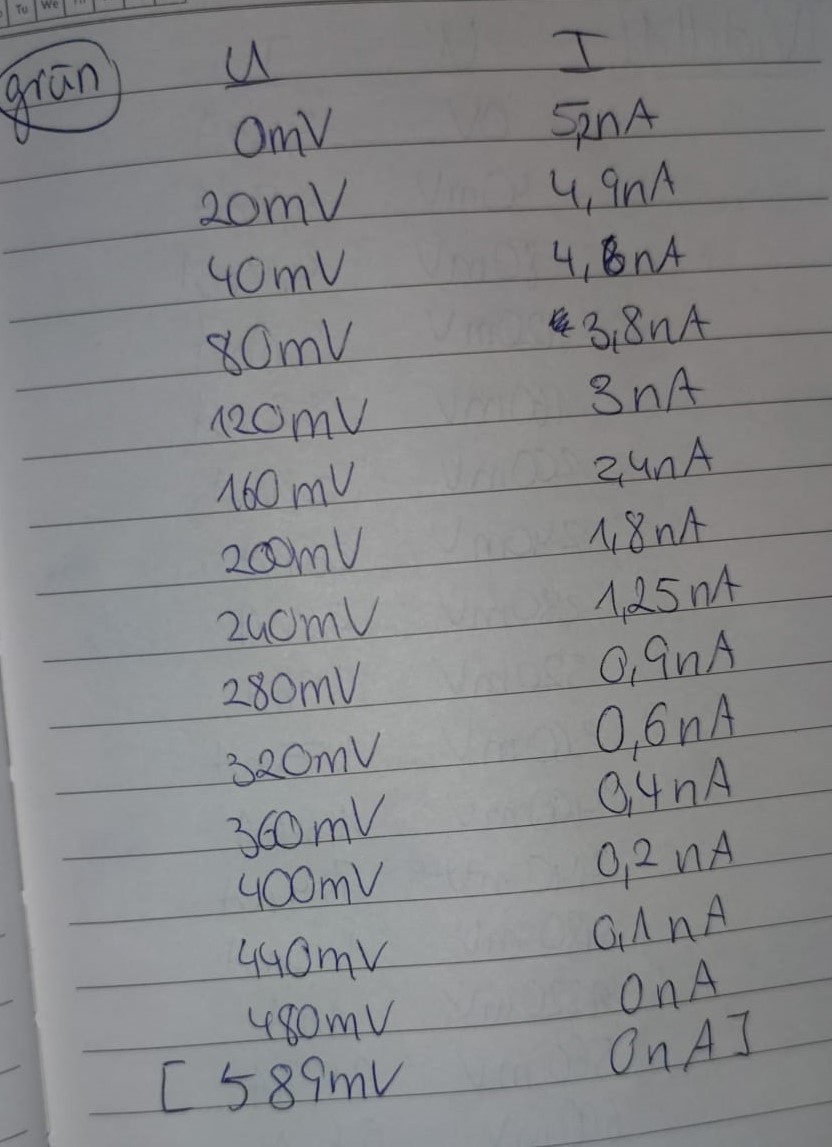 Tu We
grün U I
0mV 5,2nA
20mV 4,9nA
40mV 4,6nA
80mV 3,8nA
120mV 3nA
160mV 2,4nA
200mV 1,8nA
240mV 1,25nA
280mV 0,9nA
320mV 0,6nA
360mV 0,4nA
400mV 0,2nA
440mV 0,1nA
480mV 0nA
[589mV 0nA]